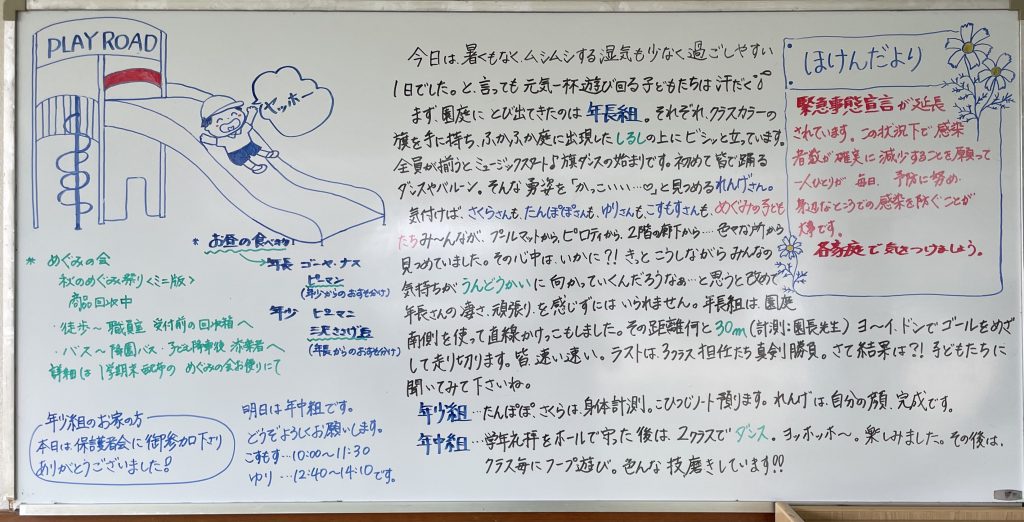 PLAY ROAD
ヤッホー
今日は、暑くもなく、ムシムシする湿気も少なく過ごしやすい
1日でした。と、言っても元気一杯遊び回る子どもたちは汗だく
まず、園庭にとび出てきたのは年長組。それぞれ、クラスカラーの
旗を手に持ち、ふかふか庭に出現したしるしの上にビシッと立っています。
全員が揃うとミュージックスタート♪旗ダンスの始まりです。初めて皆で踊る
ダンスやバルーン。そんな勇姿を「かっこいい…♡」と見つめるれんげさん。
気付けば、さくらさんも、たんぽぽさんも、ゆりさんも、こすもすさんも、めぐみの子ども
たちみ〜んなが、プールマットから、ピロティから、2階の廊下から…色々な所から
見つめていました。その心中は、いかに?!きっとこうしながらみんなの
気持ちがうんどうかいに向かっていくんだろうなぁ…と思うと改めて
年長さんの凄さ、頑張りを感じずにはいられません。年長組は、園庭
南側を使って直線かけっこもしました。その距離何と30m(計測:園長先生)ヨーイ、ドンでゴールをめざ
して走り切ります。皆、速い速い。ラストは、3クラス担任たち真剣勝負。さて結果は?!子どもたちに
聞いてみて下さいね。
年少組…たんぽぽ、さくらは、身体計測。こひつじノート預ります。れんげは、自分の顔、完成です。
年中組…学年礼拝をホールで守った後は、2クラスでダンス。ヨッホッホ〜。楽しみました。その後は、
クラス毎にフープ遊び。色んな技磨きしています!!
ほけんだより
緊急事態宣言が延長
されています。この状況下で感染
者数が確実に減少することを願って
一人ひとりが毎日、予防に努め、
感染を防ぐことが
大事です。
各家庭で気をつけましょう。
* お昼の食べきり
年長 ゴーヤ・ナス
ピーマン
(年少からのおすそ分け)
年少 ピーマン
三尺ささげ豆
(年長からのおすそ分け)
* めぐみの会
秋のめぐみ祭り<ミニ版>
商品回収中
・徒歩〜職員室受付前の回収箱へ
・バス〜降園バス・添乗者へ
詳細は1学期末配布のめぐみの会お便りにて
年少組のお家の方
本日は、保護者会に御参加下さり
ありがとうございました!
明日は年中組です。
どうぞよろしくお願いします。
こすもす…10:00〜11:30
ゆり…12:40〜14:10です。